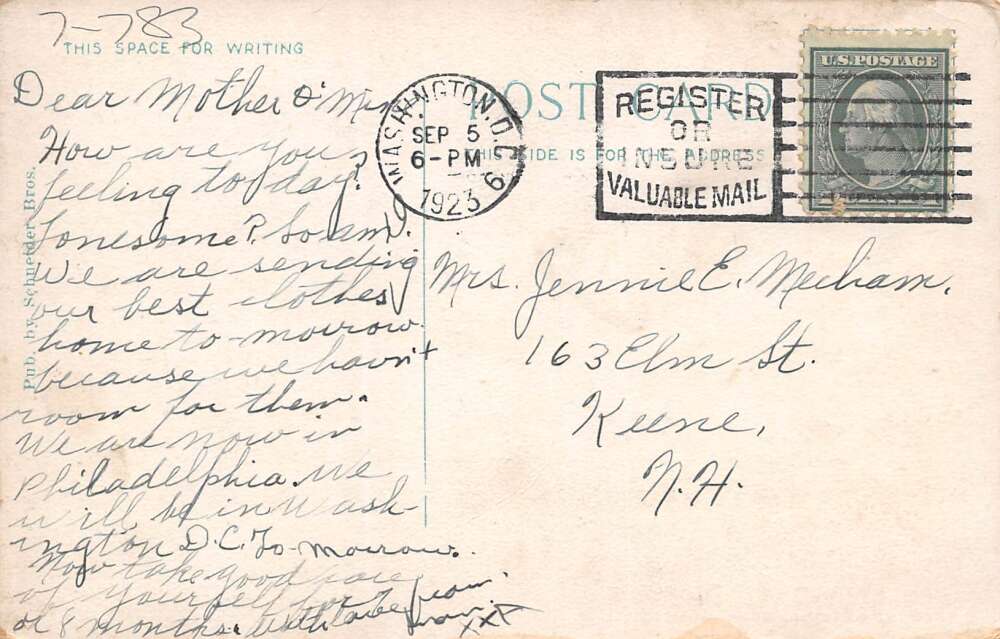 7-783
THIS SPACE FOR WRITING
POST CARD
THIS SIDE IS FOR THE ADDRESS
WASHINGTON, D.C. 6
SEP 5
6-PM
1923
REGISTER
OR
INSURE
VALUABLE MAIL
U.S. POSTAGE
Pub. by Schneider Bros.
Dear Mother O' Mine
How are you
feeling to-day?
Lonesome? So am I.
We are sending
our best clothes
home to-morrow
because we havn't
room for them.
We are now in
Philadelphia. We
will be in Wash-
ington D.C. To-morrow.
Now take good care
of yourself for 7
or 8 months. With love from
xxx
Mrs. Jennie E. Mecham,
163 Elm St.
Keene,
N.H.